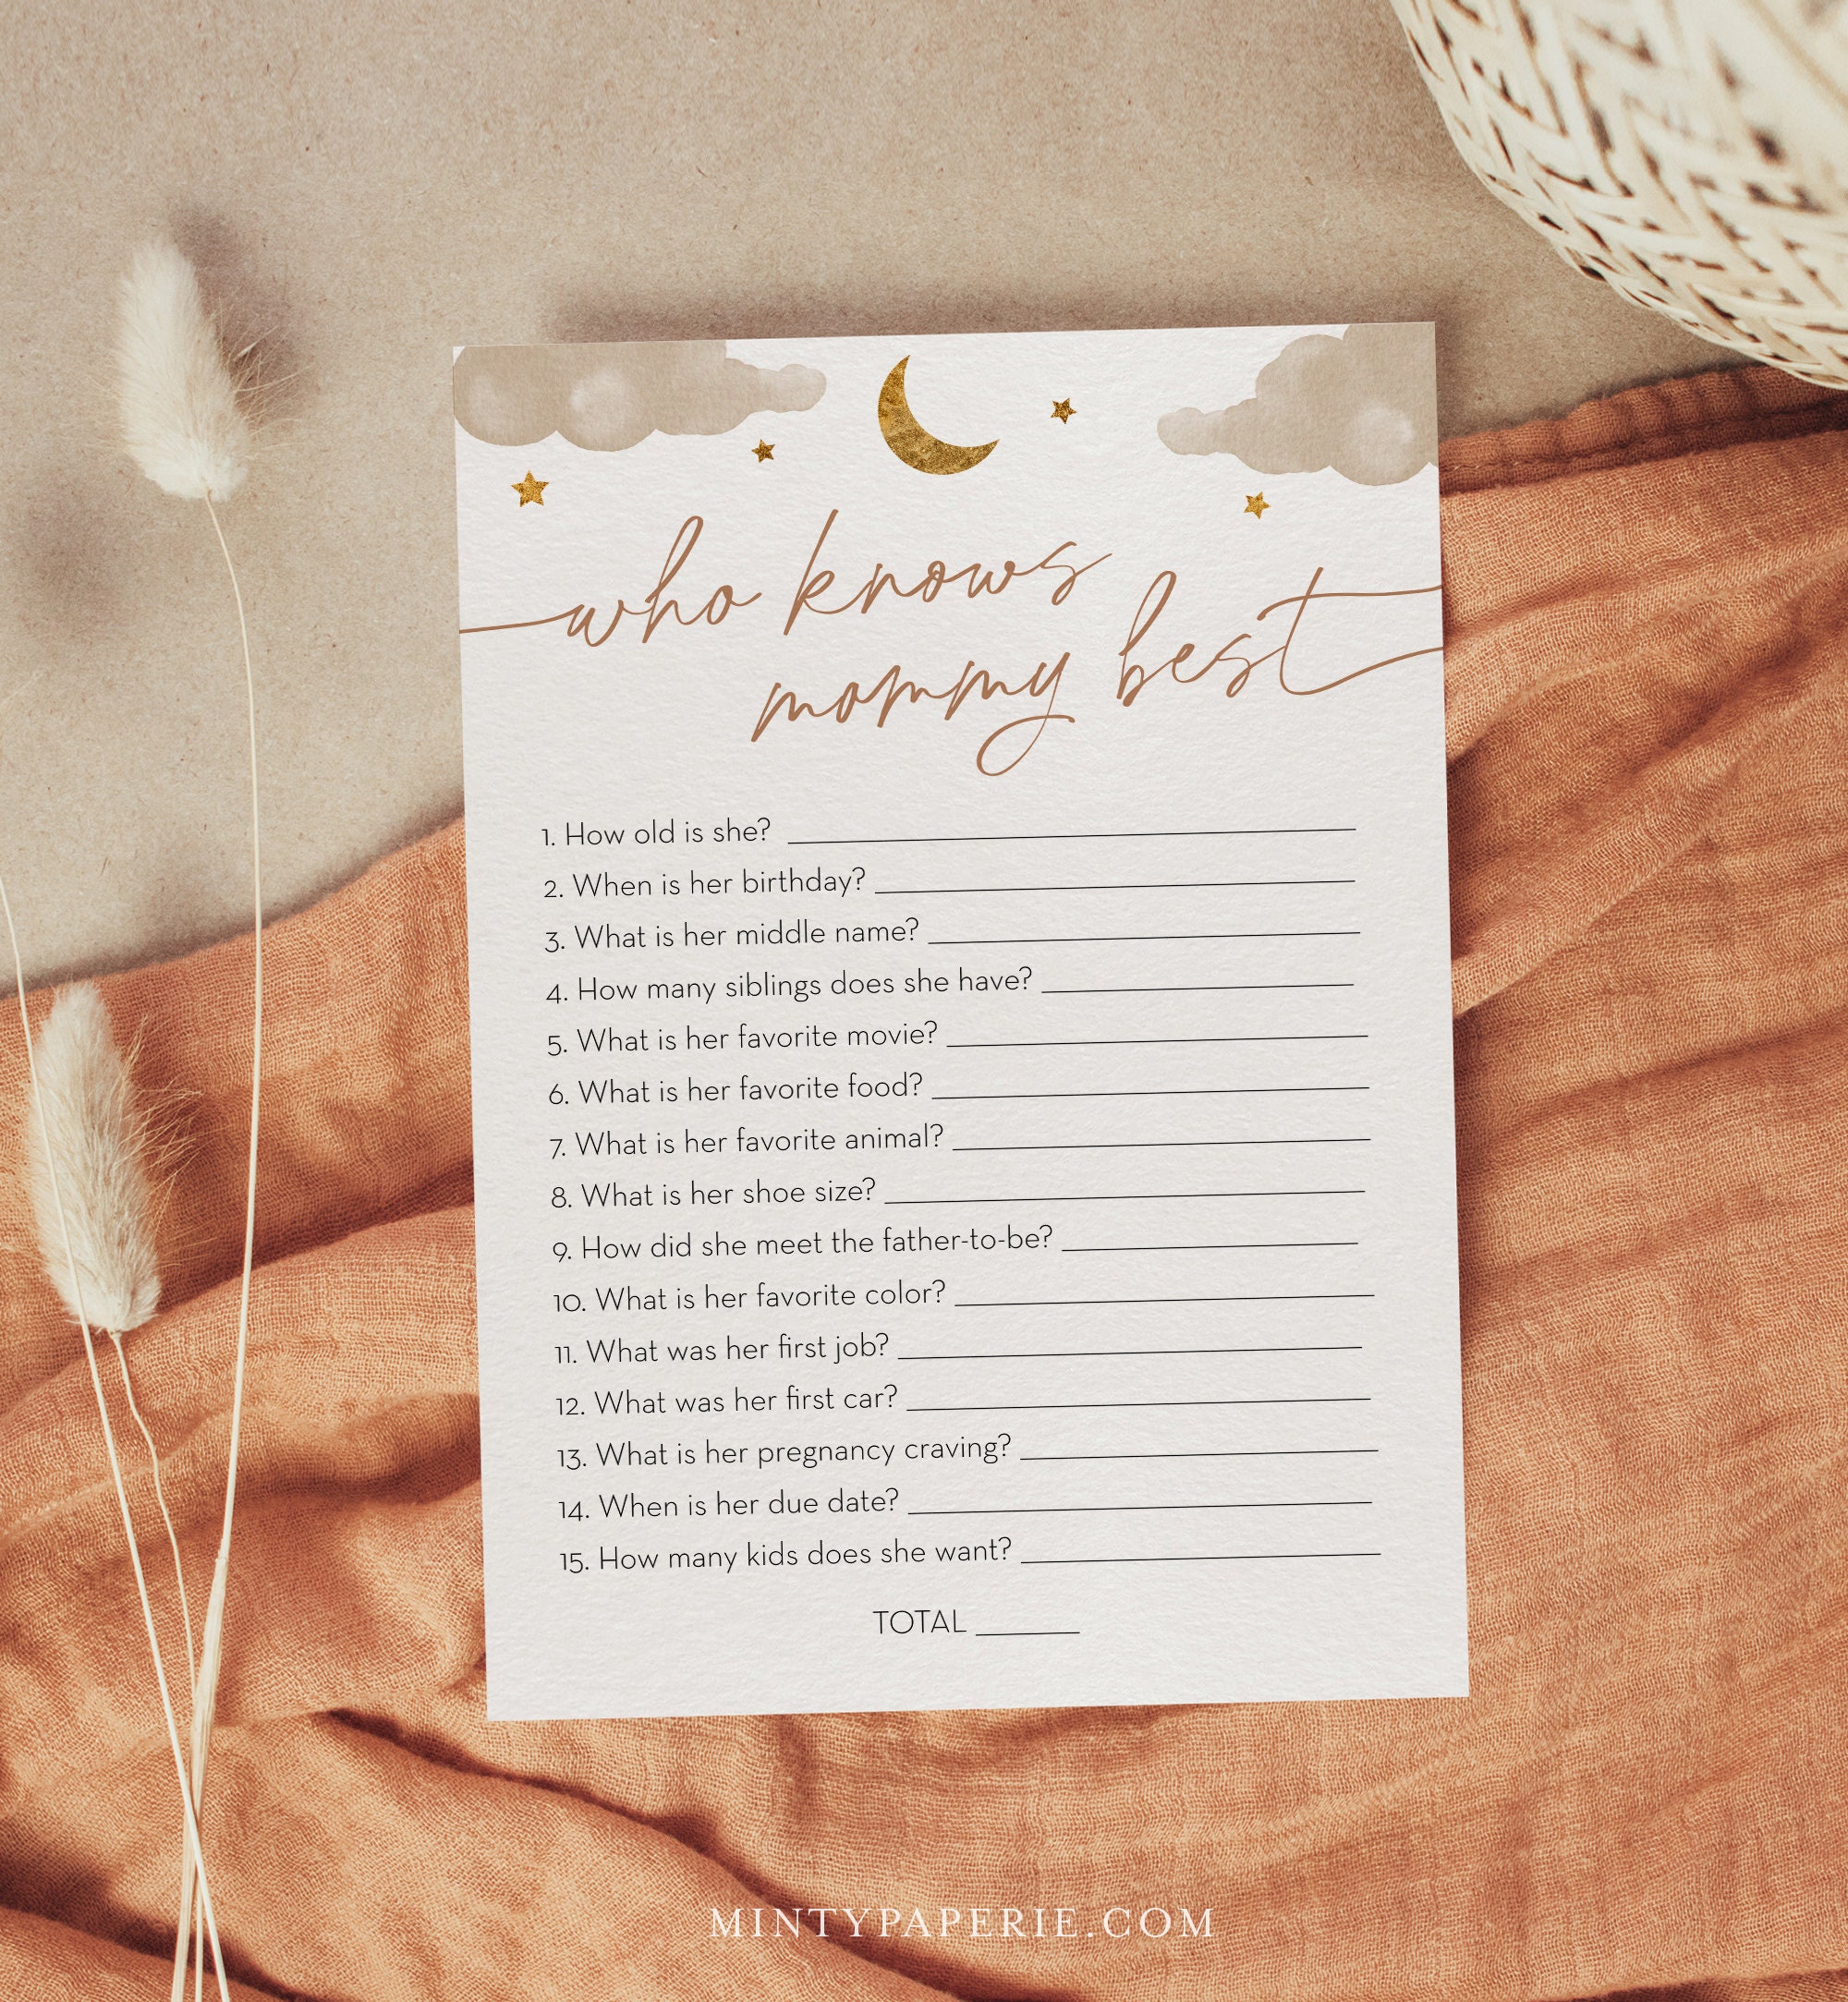 who knows
mommy best
1. How old is she? ____________________
2. When is her birthday? ____________________
3. What is her middle name? ____________________
4. How many siblings does she have? ____________________
5. What is her favorite movie? ____________________
6. What is her favorite food? ____________________
7. What is her favorite animal? ____________________
8. What is her shoe size? ____________________
9. How did she meet the father-to-be? ____________________
10. What is her favorite color? ____________________
11. What was her first job? ____________________
12. What was her first car? ____________________
13. What is her pregnancy craving? ____________________
14. When is her due date? ____________________
15. How many kids does she want? ____________________
TOTAL ______
MINTYPAPERIE.COM